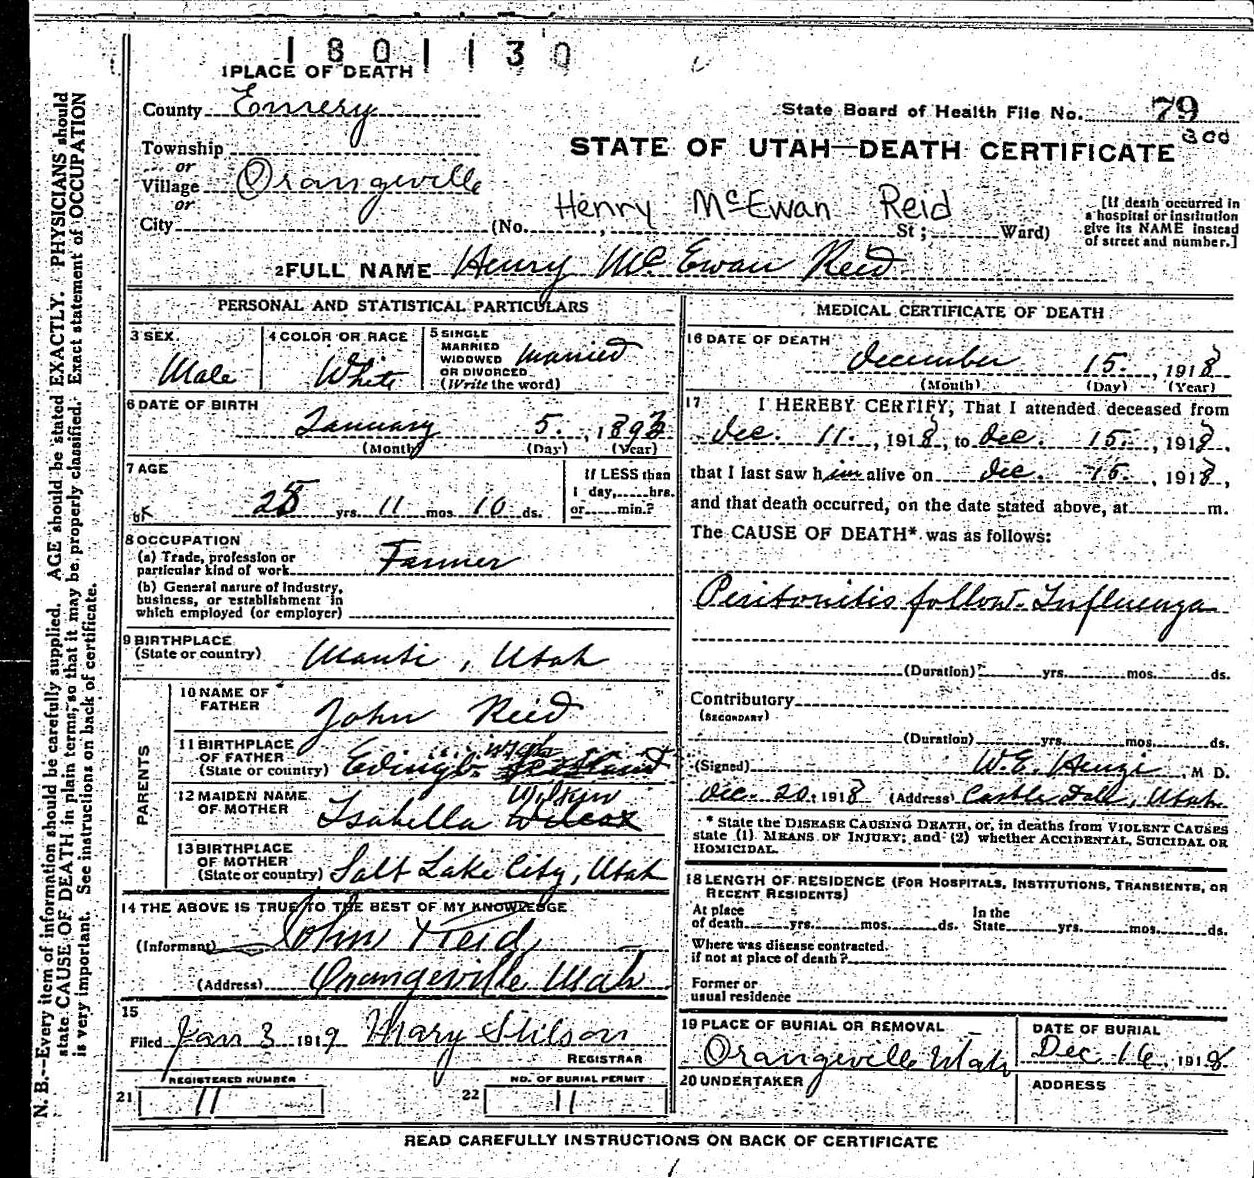 1801130
1 PLACE OF DEATH
County Emery
State Board of Health File No. 79
300
Township
STATE OF UTAH—DEATH CERTIFICATE
or
Village Orangeville
or
Henry McEwan Reid
City (No. , St; Ward)
[If death occurred in
a hospital or institution
give its NAME instead
of street and number.]
2 FULL NAME Henry Mc Ewan Reid
PERSONAL AND STATISTICAL PARTICULARS
3 SEX
Male
4 COLOR OR RACE
White
5 SINGLE
MARRIED
WIDOWED
OR DIVORCED
(Write the word)
married
6 DATE OF BIRTH
January 5. , 1893
(Month) (Day) (Year)
7 AGE
25 yrs. 11 mos. 10 ds.
If LESS than
1 day, hrs.
or min.?
8 OCCUPATION
(a) Trade, profession or
particular kind of work Farmer
(b) General nature of industry,
business, or establishment in
which employed (or employer)
9 BIRTHPLACE
(State or country) Manti, Utah
PARENTS
10 NAME OF
FATHER John Reid
11 BIRTHPLACE
OF FATHER
(State or country)
12 MAIDEN NAME
OF MOTHER Isabella Wilcox
13 BIRTHPLACE
OF MOTHER
(State or country) Salt Lake City, Utah
14 THE ABOVE IS TRUE TO THE BEST OF MY KNOWLEDGE
(Informant) John Reid
(Address) Orangeville Utah
15
Filed Jan 3 1919 Mary Stilson
REGISTRAR
REGISTERED NUMBER
21 11
NO. OF BURIAL PERMIT
22 11
MEDICAL CERTIFICATE OF DEATH
16 DATE OF DEATH
December 15. , 1918
(Month) (Day) (Year)
17 I HEREBY CERTIFY, That I attended deceased from
Dec. 11. , 1918, to Dec. 15. , 1918,
that I last saw him alive on Dec. 15. , 1918,
and that death occurred, on the date stated above, at m.
The CAUSE OF DEATH* was as follows:
Peritonitis follow. Influenza
(Duration) yrs. mos. ds.
Contributory
(SECONDARY)
(Duration) yrs. mos. ds.
(Signed) W.E. , M D.
Dec. 20, 1918 (Address) Castle Dale, Utah
* State the DISEASE CAUSING DEATH, or, in deaths from VIOLENT CAUSES
state (1) MEANS OF INJURY; and (2) whether ACCIDENTAL, SUICIDAL OR
HOMICIDAL.
18 LENGTH OF RESIDENCE (FOR HOSPITALS, INSTITUTIONS, TRANSIENTS, OR
RECENT RESIDENTS)
At place
of death yrs. mos. ds.
In the
State yrs. mos. ds.
Where was disease contracted.
if not at place of death?
Former or
usual residence
19 PLACE OF BURIAL OR REMOVAL
Orangeville Utah
DATE OF BURIAL
Dec 16, 1918
20 UNDERTAKER
ADDRESS
READ CAREFULLY INSTRUCTIONS ON BACK OF CERTIFICATE
N. B.—Every item of information should be carefully supplied. AGE should be stated EXACTLY. PHYSICIANS should
state CAUSE OF DEATH in plain terms, so that it may be properly classified. Exact statement of OCCUPATION
is very important. See instructions on back of certificate.